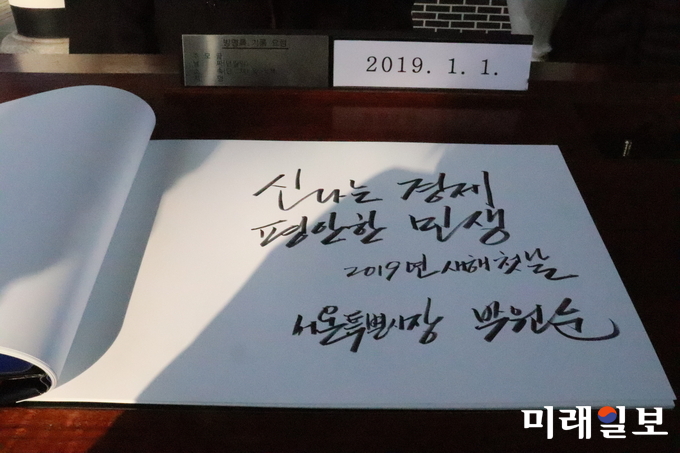 방명록 기록 요령
2019. 1. 1.
신나는 경제
평안한 민생
2019년 새해 첫날
서울특별시장 박원순
미래일보